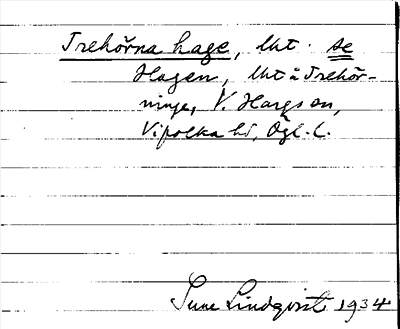 Trehörna hage, lht. se
Hagen, lht å Trehör-
ninge, V. Hargs sn,
Vifolka hd, Ögl. l.
Sune Lindqvist 1934